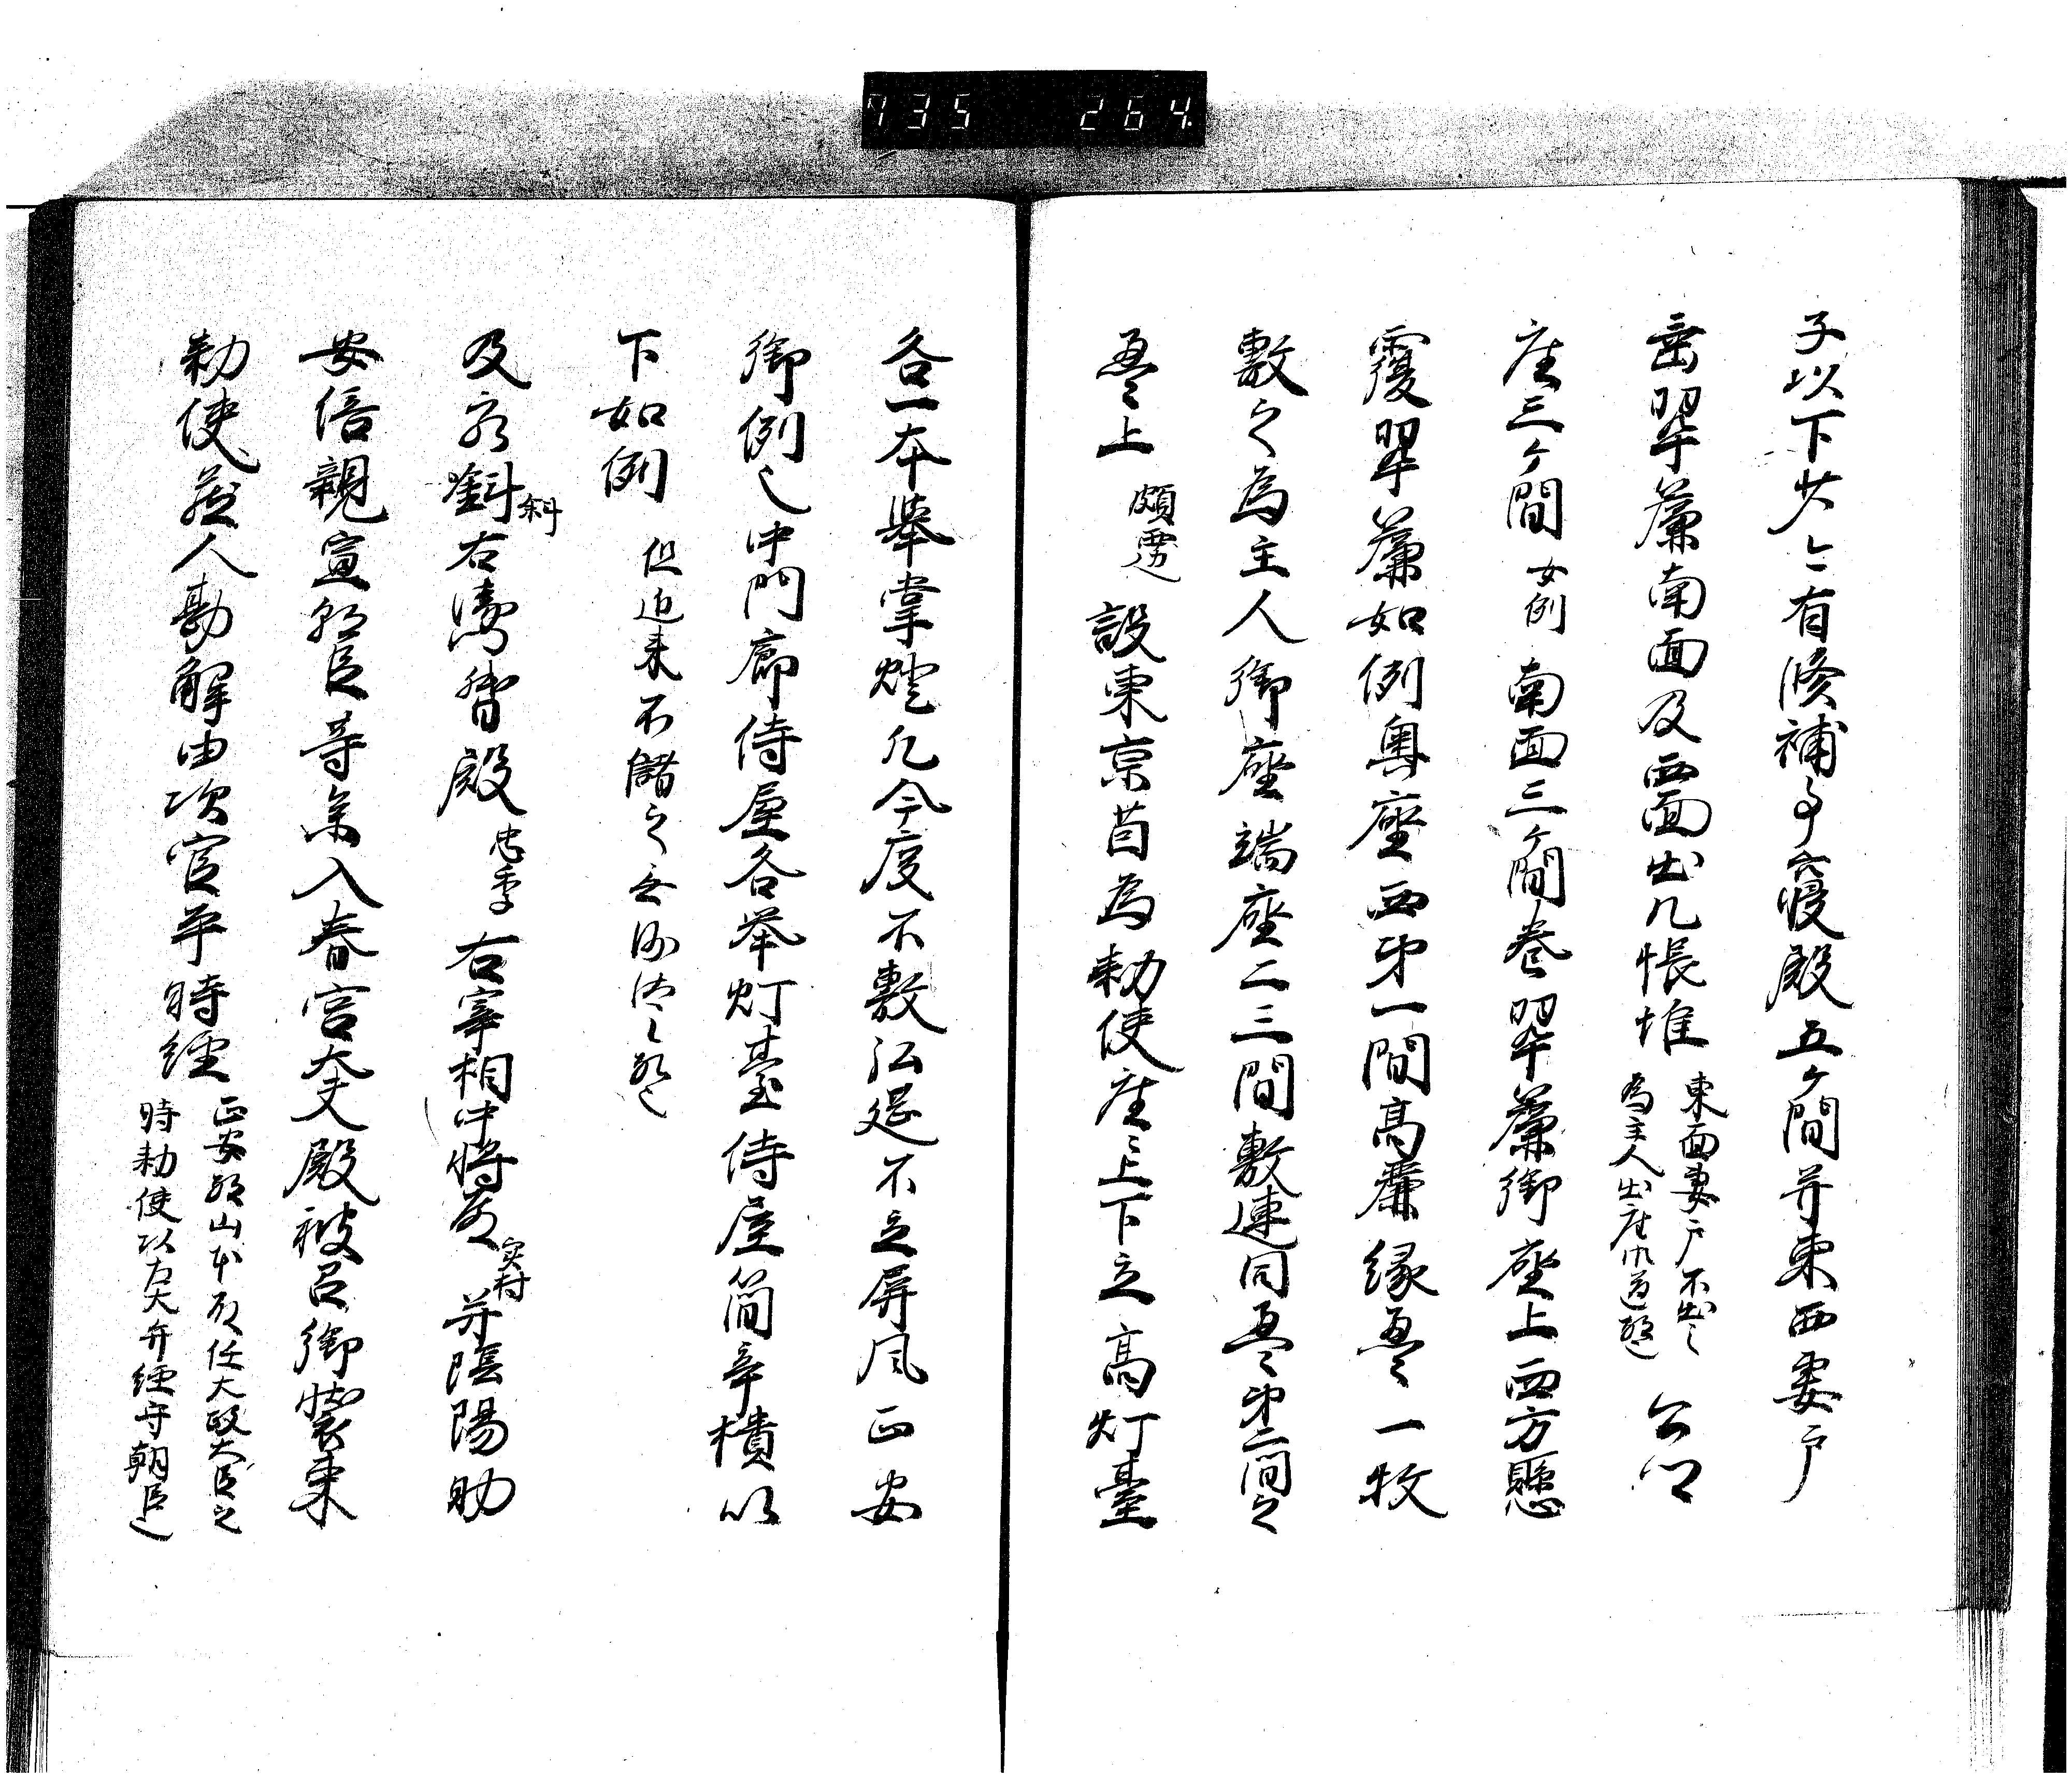 735 264
子以下少々有修補事寝殿五ケ間并東西妻戸
垂翠簾南面及西面出几帳帷
東面妻戸不出之
為主人出座
公卿
座三ケ間
女例
南面三ケ間巻翠簾御座上四方懸
覆翠簾如例奥座西第一間高麗縁畳一枚
敷之為主人御座端座二三間敷連同畳第二間之
畳上
頗男
設東京茵為勅使座上下立高灯臺
各一本挙掌燈凡今度不敷弘筵不立屏風正安
御例也中門廊侍屋各挙灯臺侍屋簡辛樻以
下如例
但近来不儲之
及永斜
斜
右馬督殿
忠季
右宰相中将殿
実村
并陰陽助
安倍親宣朝臣等参入春宮大夫殿被召御装束
勅使蔵人勘解由次官平時経
正安 山本殿任太政大臣之
時勅使以左大弁経守朝臣也